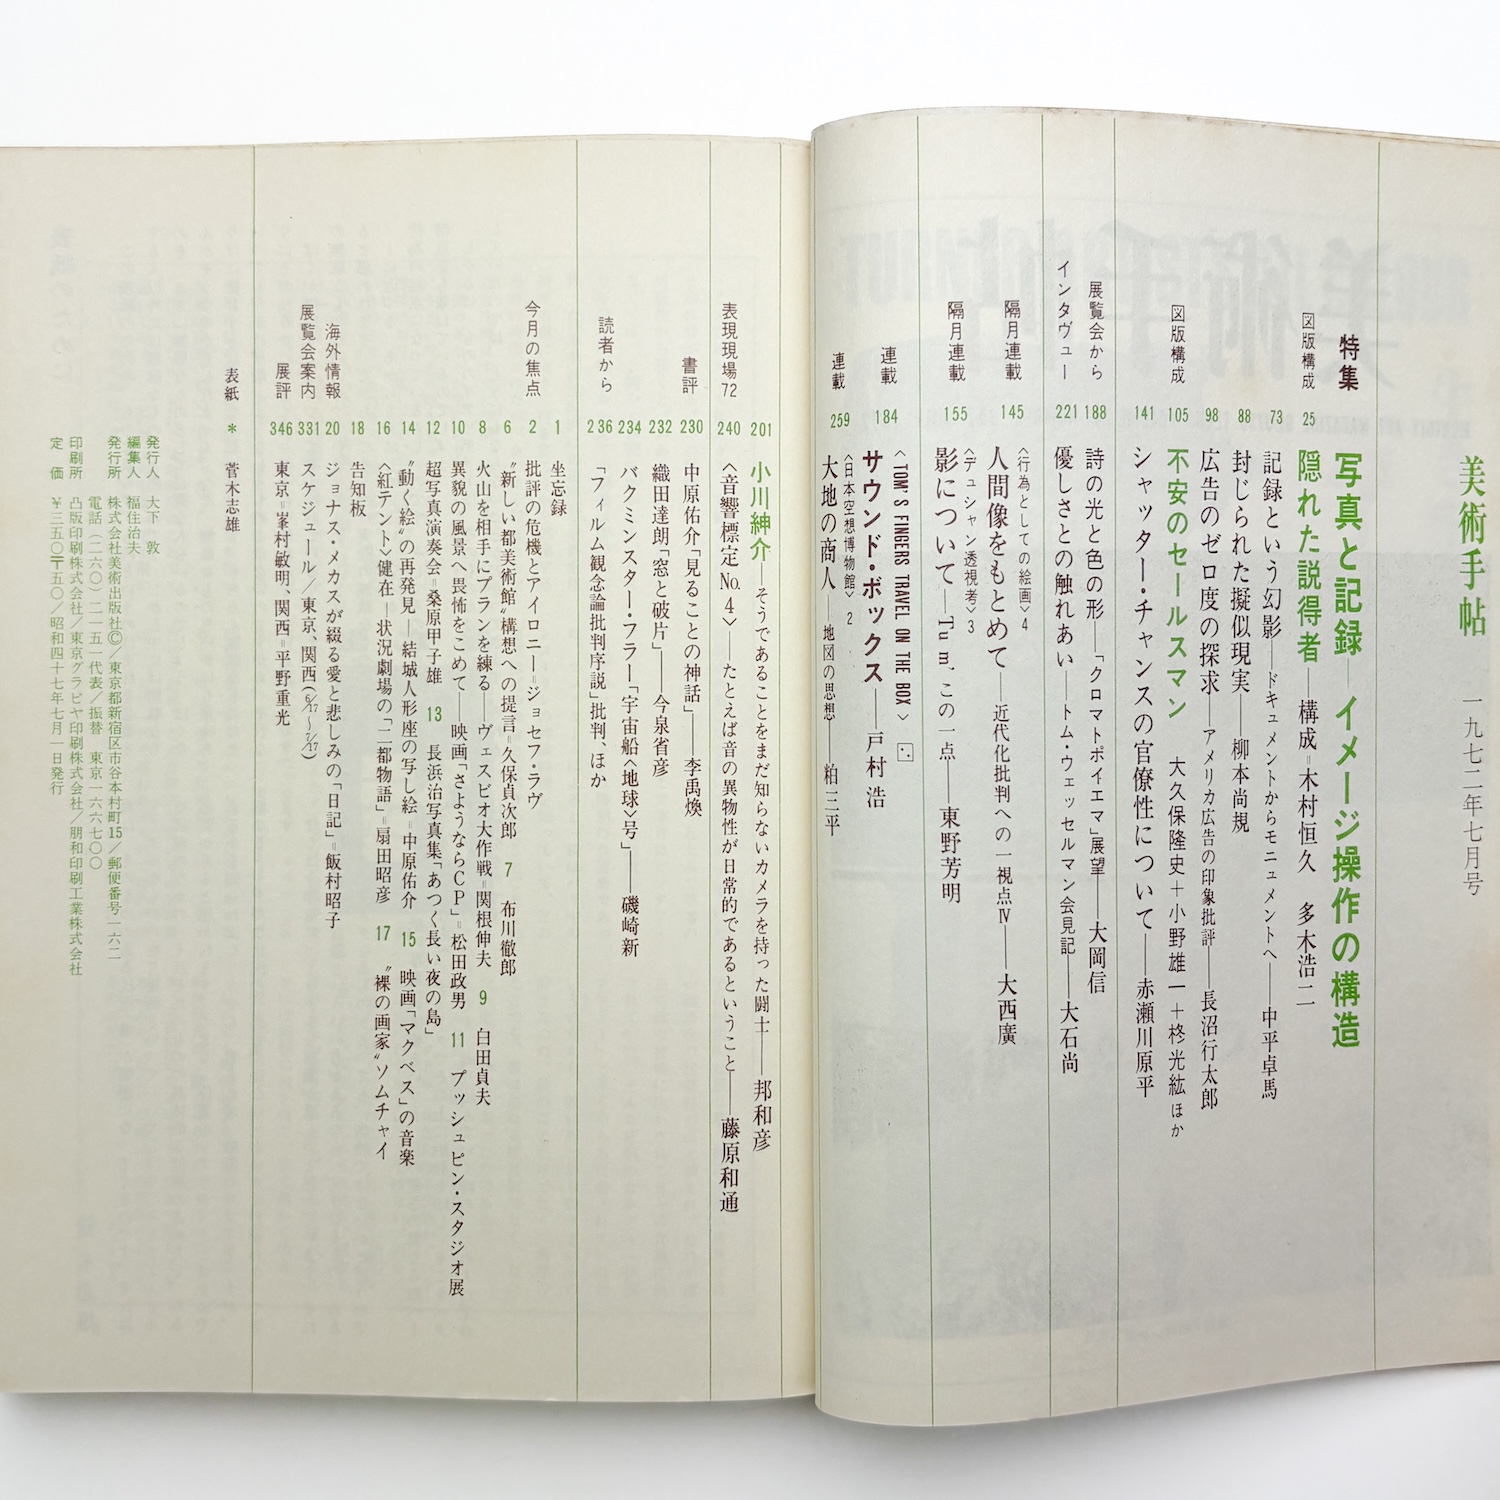 美術手帖 一九七二年七月号
特集 写真と記録─イメージ操作の構造
図版構成 25 隠れた説得者─構成=木村恒久 多木浩二
73 記録という幻影──ドキュメントからモニュメントへ──中平卓馬
88 封じられた擬似現実──柳本尚規
98 広告のゼロ度の探求──アメリカ広告の印象批評──長沼行太郎
図版構成 105 不安のセールスマン 大久保隆史＋小野雄一＋柊光紘ほか
141 シャッター・チャンスの官僚性について──赤瀬川原平
展覧会から 188 詩の光と色の形──「クロマトポイエマ」展望──大岡信
インタヴュー 221 優しさとの触れあい──トム・ウェッセルマン会見記──大石尚
〈行為としての絵画〉4
隔月連載 145 人間像をもとめて──近代化批判への一視点Ⅳ──大西廣
〈デュシャン透視考〉3
隔月連載 155 影について─"Tu m'"この一点──東野芳明
〈TOM'S FINGERS TRAVEL ON THE BOX〉
連載 184 サウンド・ボックス──戸村浩
〈日本空想博物館〉2
連載 259 大地の商人──地図の思想──粕三平
201 小川紳介─そうであることをまだ知らないカメラを持った闘士──邦和彦
表現現場72 240 〈音響標定No.4〉──たとえば音の異物性が日常的であるということ──藤原和通
書評 230 中原佑介「見ることの神話」──李禹煥
232 織田達朗「窓と破片」──今泉省彦
234 バクミンスター・フラー「宇宙船〈地球〉号」──磯崎新
読者から 236 「フィルム観念論批判序説」批判、ほか
1 坐忘録
今月の焦点 2 批評の危機とアイロニー=ジョセフ・ラヴ
6 〝新しい都美術館〟構想への提言=久保貞次郎 7 布川徹郎
8 火山を相手にプランを練る──ヴェスビオ大作戦=関根伸夫 9 白田貞夫
10 異貌の風景へ畏怖をこめて──映画「さようならCP」=松田政男 11 プッシュピン・スタジオ展
12 超写真演奏会=桑原甲子雄 13 長浜治写真集「あつく長い夜の島」
14 〝動く絵〟の再発見─結城人形座の写し絵=中原佑介 15 映画「マクベス」の音楽
16 〈紅テント〉健在─状況劇場の「二都物語」=扇田昭彦 17 〝裸の画家〟ソムチャイ
18 告知板
海外情報 20 ジョナス・メカスが綴る愛と悲しみの「日記」=飯村昭子
展覧会案内 331 スケジュール／東京、関西(6/17〜7/17)
展評 346 東京=峯村敏明、関西=平野重光
表紙 * 菅木志雄
発行人 大下敦
編集人 福住治夫
発行所 株式会社美術出版社©／東京都新宿区市谷本村町15／郵便番号一六二
電話（二六〇）二一五一代表／振替 東京一六六七〇〇
印刷所 凸版印刷株式会社／東京グラビヤ印刷株式会社／朋和印刷工業株式会社
定価 ¥三五〇〒五〇／昭和四十七年七月一日発行